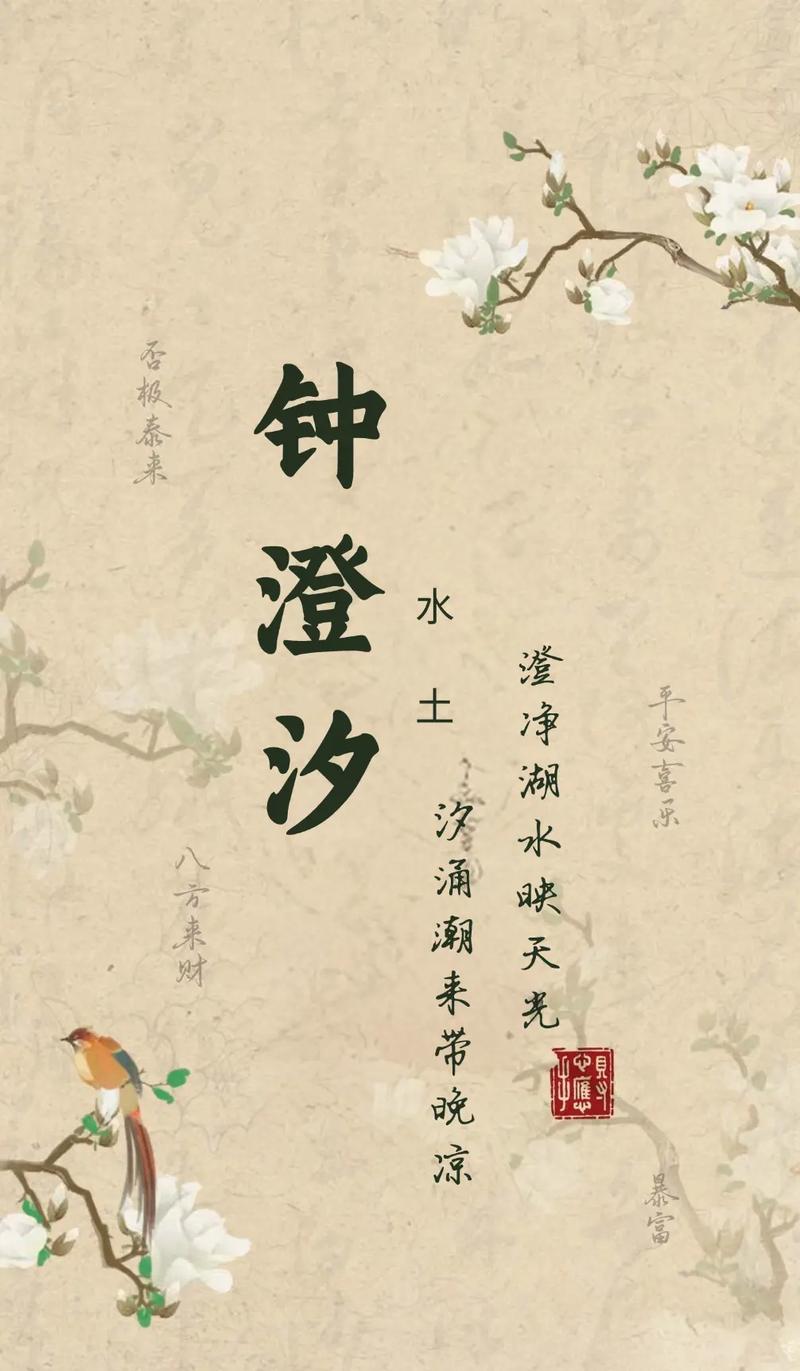 钟澄汐
水土
澄净湖水映天光
汐涌潮来带晚凉
否极泰来
平安喜乐
八方来财
暴富